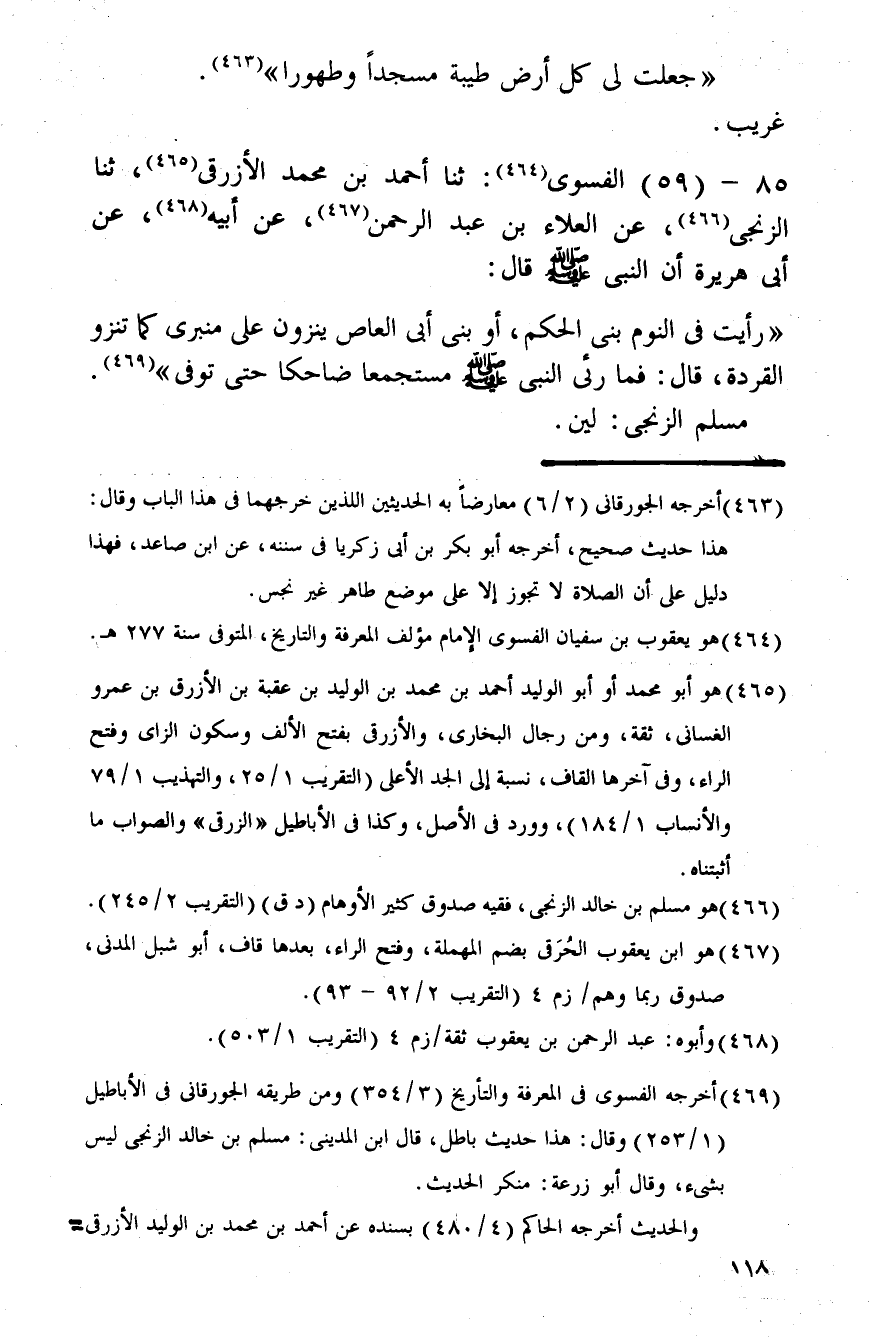 «جعلت لى كل أرض طيبة مسجداً وطهورا»(٤٦٣).
غريب.
٨٥ – (٥٩) الفسوى(٤٦٤): ثنا أحمد بن محمد الأزرقى(٤٦٥)، ثنا
الزنجى(٤٦٦)، عن العلاء بن عبد الرحمن(٤٦٧)، عن أبيه(٤٦٨)، عن
أبى هريرة أن النبى ﷺ قال:
«رأيت فى النوم بنى الحكم، أو بنى أبى العاص ينزون على منبرى كما تنزو
القردة، قال: فما رئى النبى ﷺ مستجمعا ضاحكا حتى توفى»(٤٦٩).
مسلم الزنجى: لين.
(٤٦٣)أخرجه الجورقانى (٦/٢) معارضاً به الحديثين اللذين خرجهما فى هذا الباب وقال:
هذا حديث صحيح، أخرجه أبو بكر بن أبى زكريا فى سننه، عن ابن صاعد، فهذا
دليل على أن الصلاة لا تجوز إلا على موضع طاهر غير نجس.
(٤٦٤)هو يعقوب بن سفيان الفسوى الإمام مؤلف المعرفة والتاريخ، المتوفى سنة ٢٧٧ هـ.
(٤٦٥)هو أبو محمد أو أبو الوليد أحمد بن محمد بن الوليد بن عقبة بن الأزرق بن عمرو
الغسانى، ثقة، ومن رجال البخارى، والأزرقى بفتح الألف وسكون الزاى وفتح
الراء، وفى آخرها القاف، نسبة إلى الجد الأعلى (التقريب ٢٥/١، والتهذيب ٧٩/١
والأنساب ١٨٤/١)، وورد فى الأصل، وكذا فى الأباطيل «الزرقى» والصواب ما
أثبتناه.
(٤٦٦)هو مسلم بن خالد الزنجى، فقيه صدوق كثير الأوهام (د ق) (التقريب ٢٤٥/٢).
(٤٦٧)هو ابن يعقوب الحُرَقى بضم المهملة، وفتح الراء، بعدها قاف، أبو شبل المدنى،
صدوق ربما وهم/ زم ٤ (التقريب ٩٢/٢ – ٩٣).
(٤٦٨)وأبوه: عبد الرحمن بن يعقوب ثقة/زم ٤ (التقريب ٥٠٣/١).
(٤٦٩)أخرجه الفسوى فى المعرفة والتأريخ (٣٥٤/٣) ومن طريقه الجورقانى فى الأباطيل
(٢٥٣/١) وقال: هذا حديث باطل، قال ابن المدينى: مسلم بن خالد الزنجى ليس
بشىء، وقال أبو زرعة: منكر الحديث.
والحديث أخرجه الحاكم (٤٨٠/٤) بسنده عن أحمد بن محمد بن الوليد الأزرقى=
١١٨